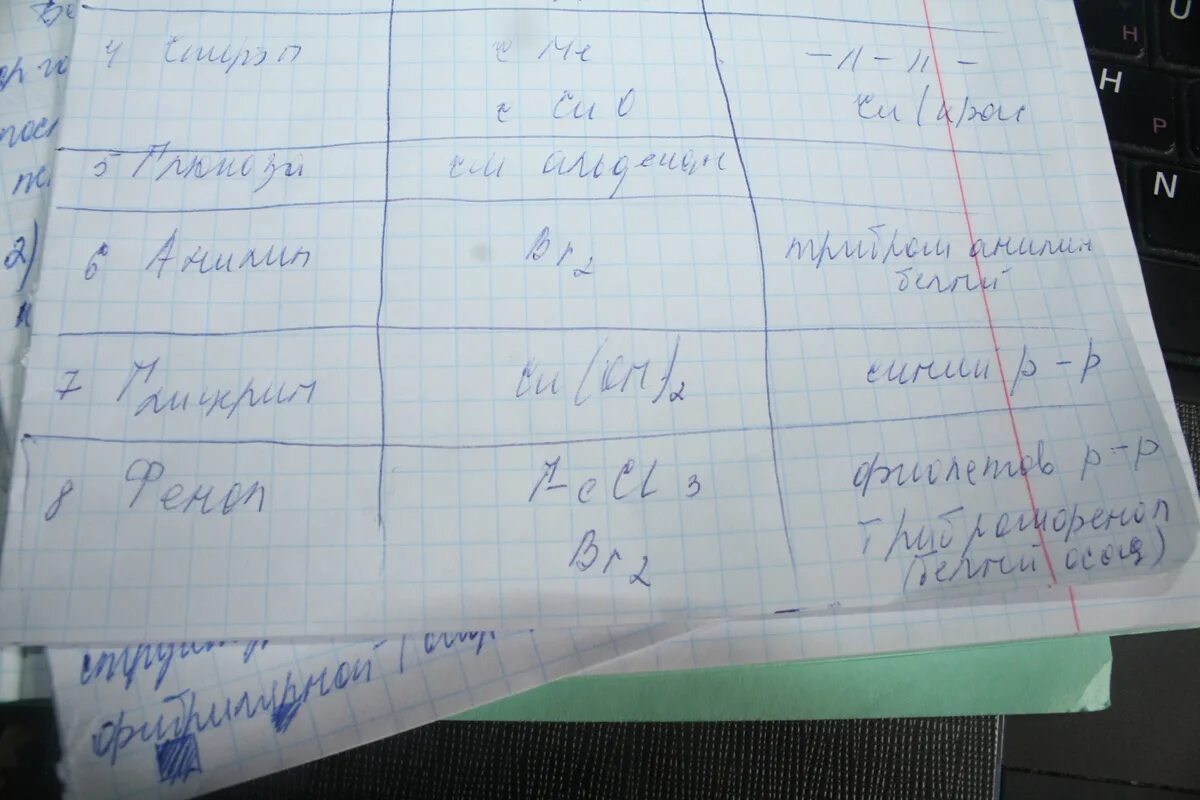 4 Спирт с Me -〃-〃-
с CuO Cu (крас
5 Глюкоза см альдегид
6 Анилин Br2 триброманилин
белый
7 Глицерин Cu(OH)2 синий р-р
8 Фенол FeCl3 фиолетов р-р
Br2 Трибромфенол
(белый осад)
2)
фибриллярной
H
P
N
H
U